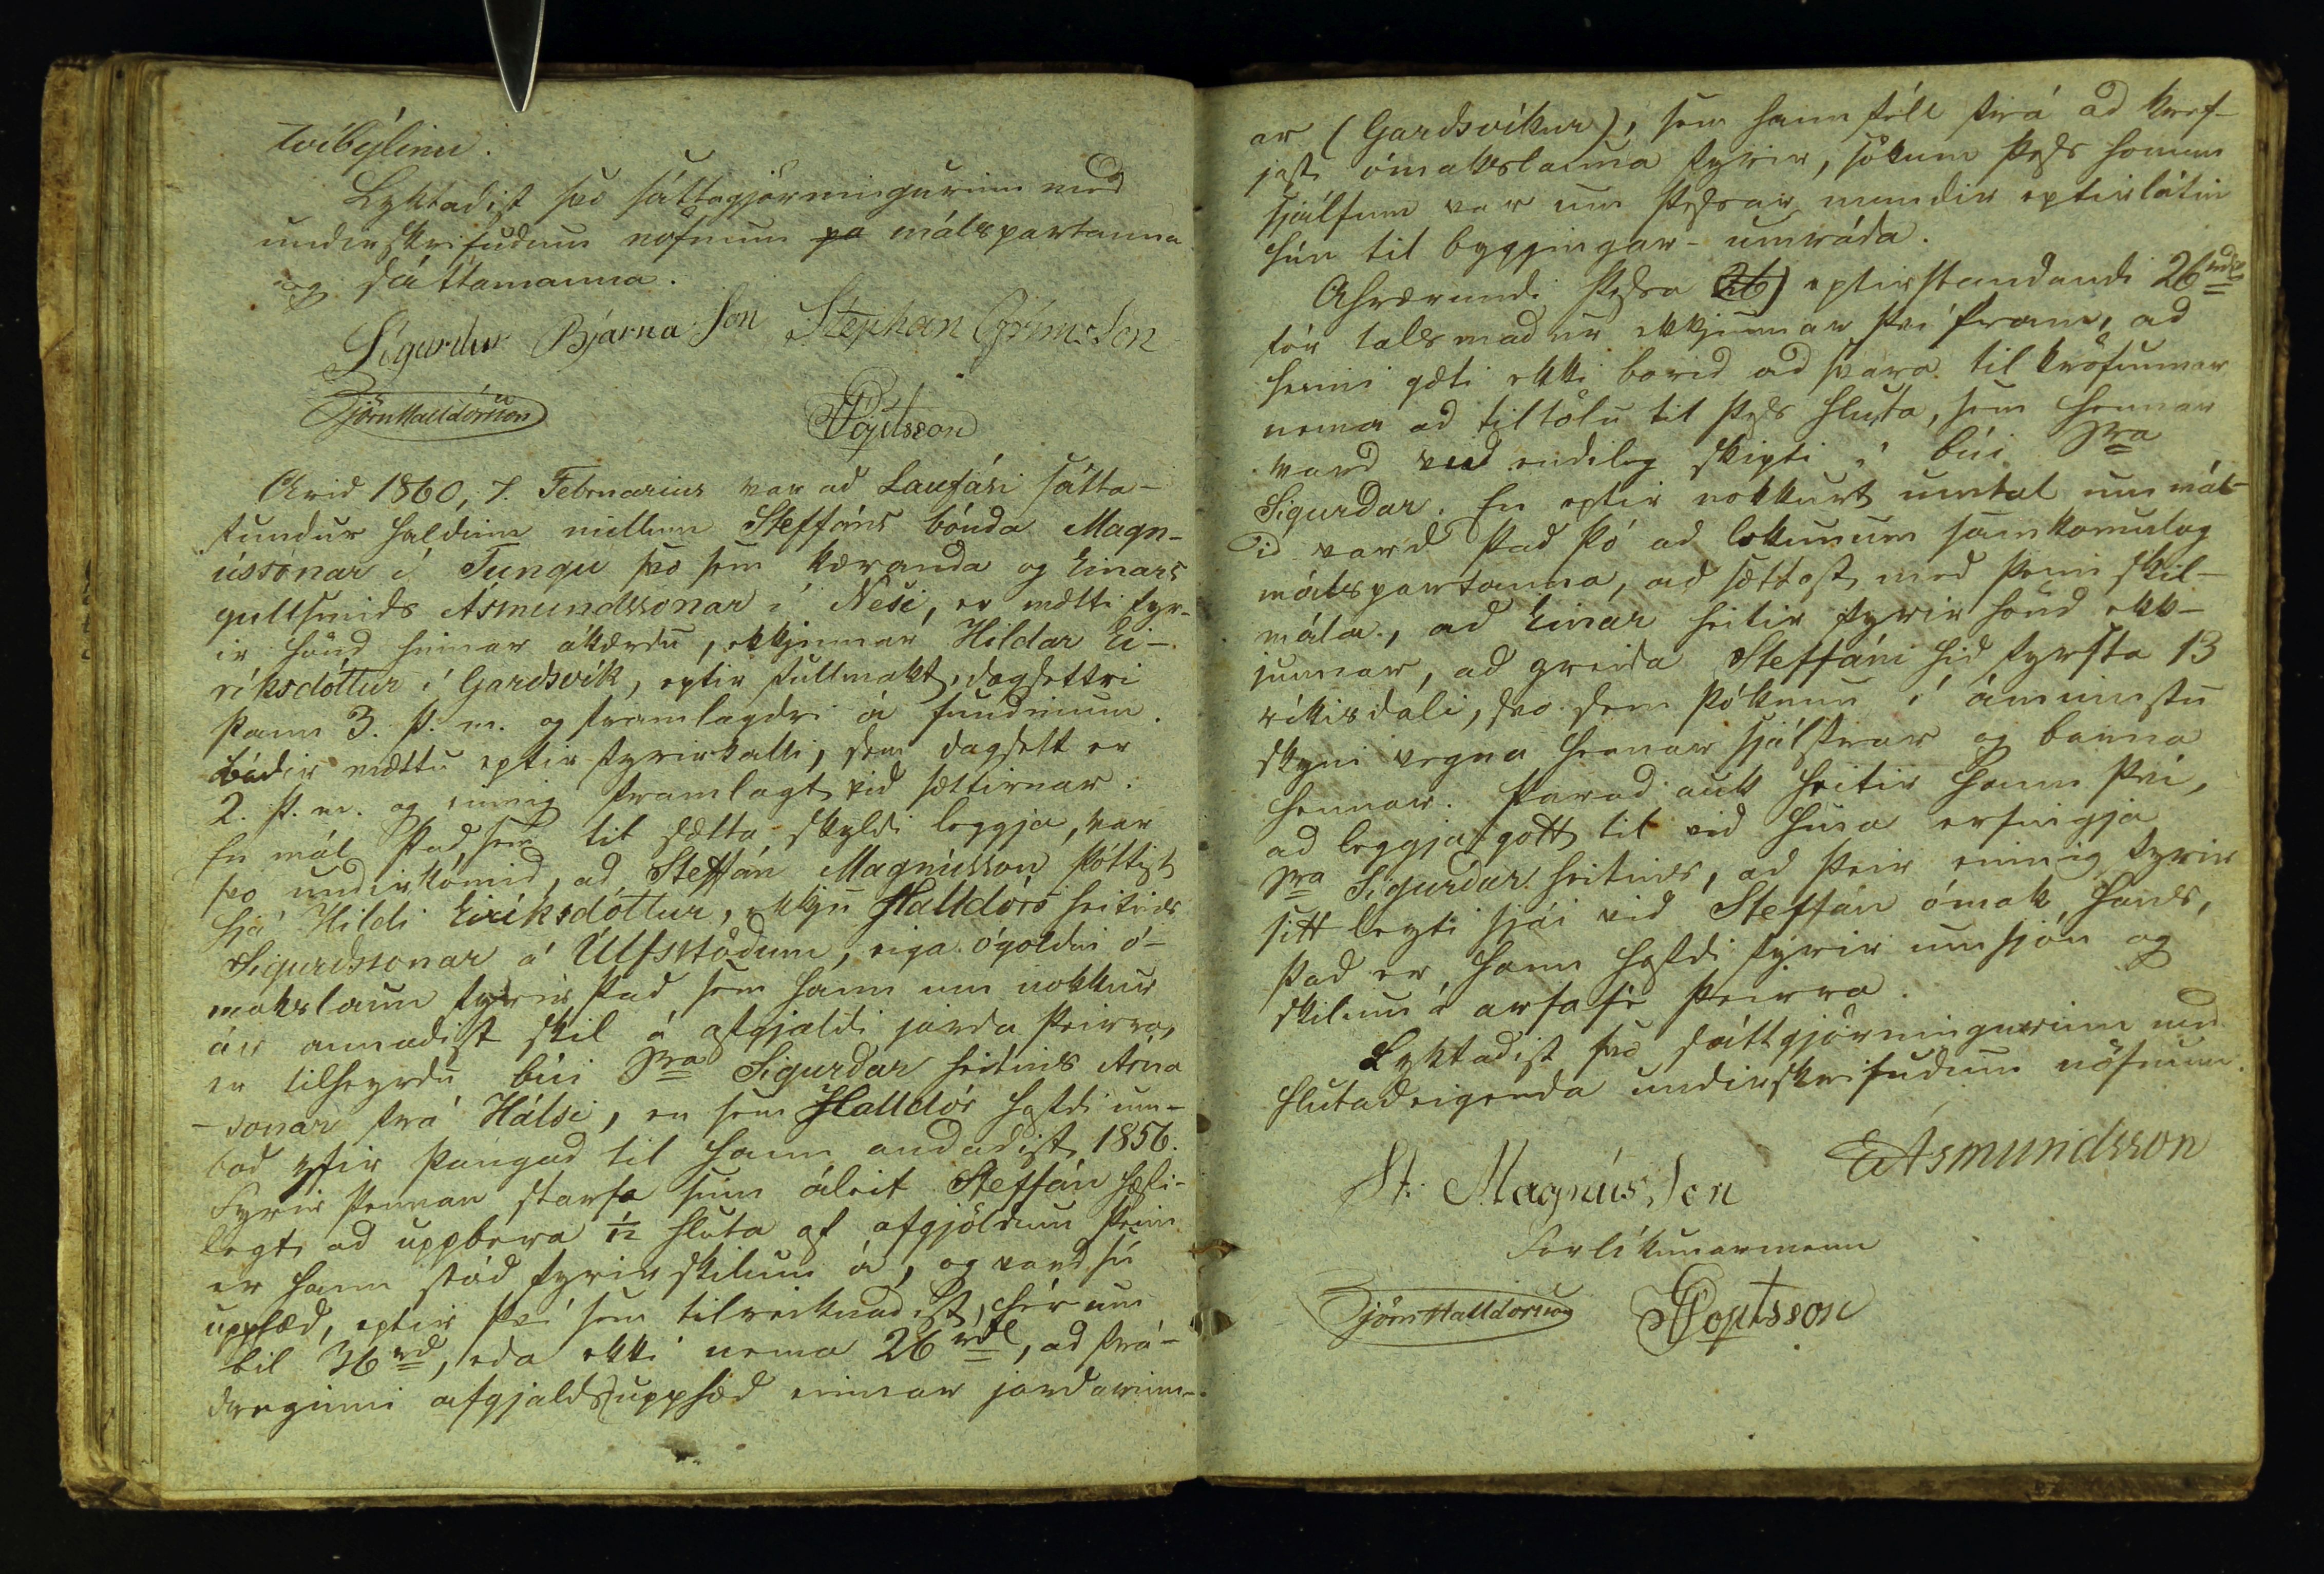 tvíbýlinu.
Lyktadist svo sáttagjörningurinn med
undirskrifudum nöfnum málspartanna
og sáttamanna.
Sigurdur Bjarna Son Stephan GrímsSon
Björn Halldórsson
Arid 1860, 7. Februarius var ad Laufási sátta-
fundur haldinn millum Steffáns bónda Magn-
ússonar í Tungu svo sem kæranda og Einars
gullsmids Ásmundssonar í Nesi, er mætti fyr-
ir hönd hinnar ákærdu, ekkjunnar Hildar Ei-
ríksdóttur í Gardsvík, eptir fullmakt, dagsettri
þann 3. þ. m. og framlagdri á fundinum.
Bádir mættu eptir fyrirkalli, sem dagsett er
2. þ. m. og einnig framlagt vid sættirnar.
En mál það, sem til sætta skyldi leggja, var
svo undirkomid, ad Steffán Magnússon þóttist
hjá Hildi Eiríksdóttur, ekkju Halldórs heitins
Sigurdssonar á Úlfsstödum, eiga ógoldin ó-
makslaun fyrir þad sem hann um nokkur
ár annadist skil á afgjaldi jarda þeirra,
er tilheyrdu búi Sra Sigurdar heitins Árna
-sonar frá Hálsi, en sem Halldór hafdi um-
bod yfir þangad til hann andadist 1856.
Fyrir þennan starfa sinn áleit Steffán hæfi-
legt ad uppbera 1/12 hluta af afgjöldum þeim
er hann stód fyrir skilum á, og vard sú
upphæd, eptir því sem tilreiknadist, hér um
bil 36 rd, eda ekki nema 26 rdl, ad frá-
dreginni afgjaldsupphæd einnar jardarinn-
ar (Gardsvíkur), sem hann féll frá ad kref-
jast ómakslauna fyrir, sökum þess honum
sjálfum var um þessar mundir eptirlátin
hún til byggingar-umráda.
Áhrærandi þessa eptirstandandi 26 rdl
fór talsmadur ekkjunnar því fram, ad
henni gæti ekki borid ad svara til kröfunnar
nema ad tiltölu til þess hluta, sem hennar
vard vid endileg skipti í búi Sra
Sigurdar. En eptir nokkurt umtal um mál-
id vard þad þó ad lokunum samkomulag
málspartanna, ad sættast med þeim skil-
mála, ad Einar heitir fyrir hönd ekk-
junnar, ad greida Steffáni hid fyrsta 13
ríkisdali, svo sem þóknun í áminnstu
skyni vegna hennar sjálfrar og barna
hennar. Þarad auk heitir hann því,
ad leggja gott til vid hina erfingja
Sra Sigurdar heitins, ad þeir einnig fyrir
sitt leyti sjái vid Steffán ómak hans,
þad er hann hafdi fyrir umsjón og
skilum á arfafé þeirra.
Lyktadist svo sáttgjörningurinn med
hlutadeigenda undirskrifudum nöfnum.
St. MagnúsSon EÁsmundsson
Forlíkunarmenn
Björn Halldorsson